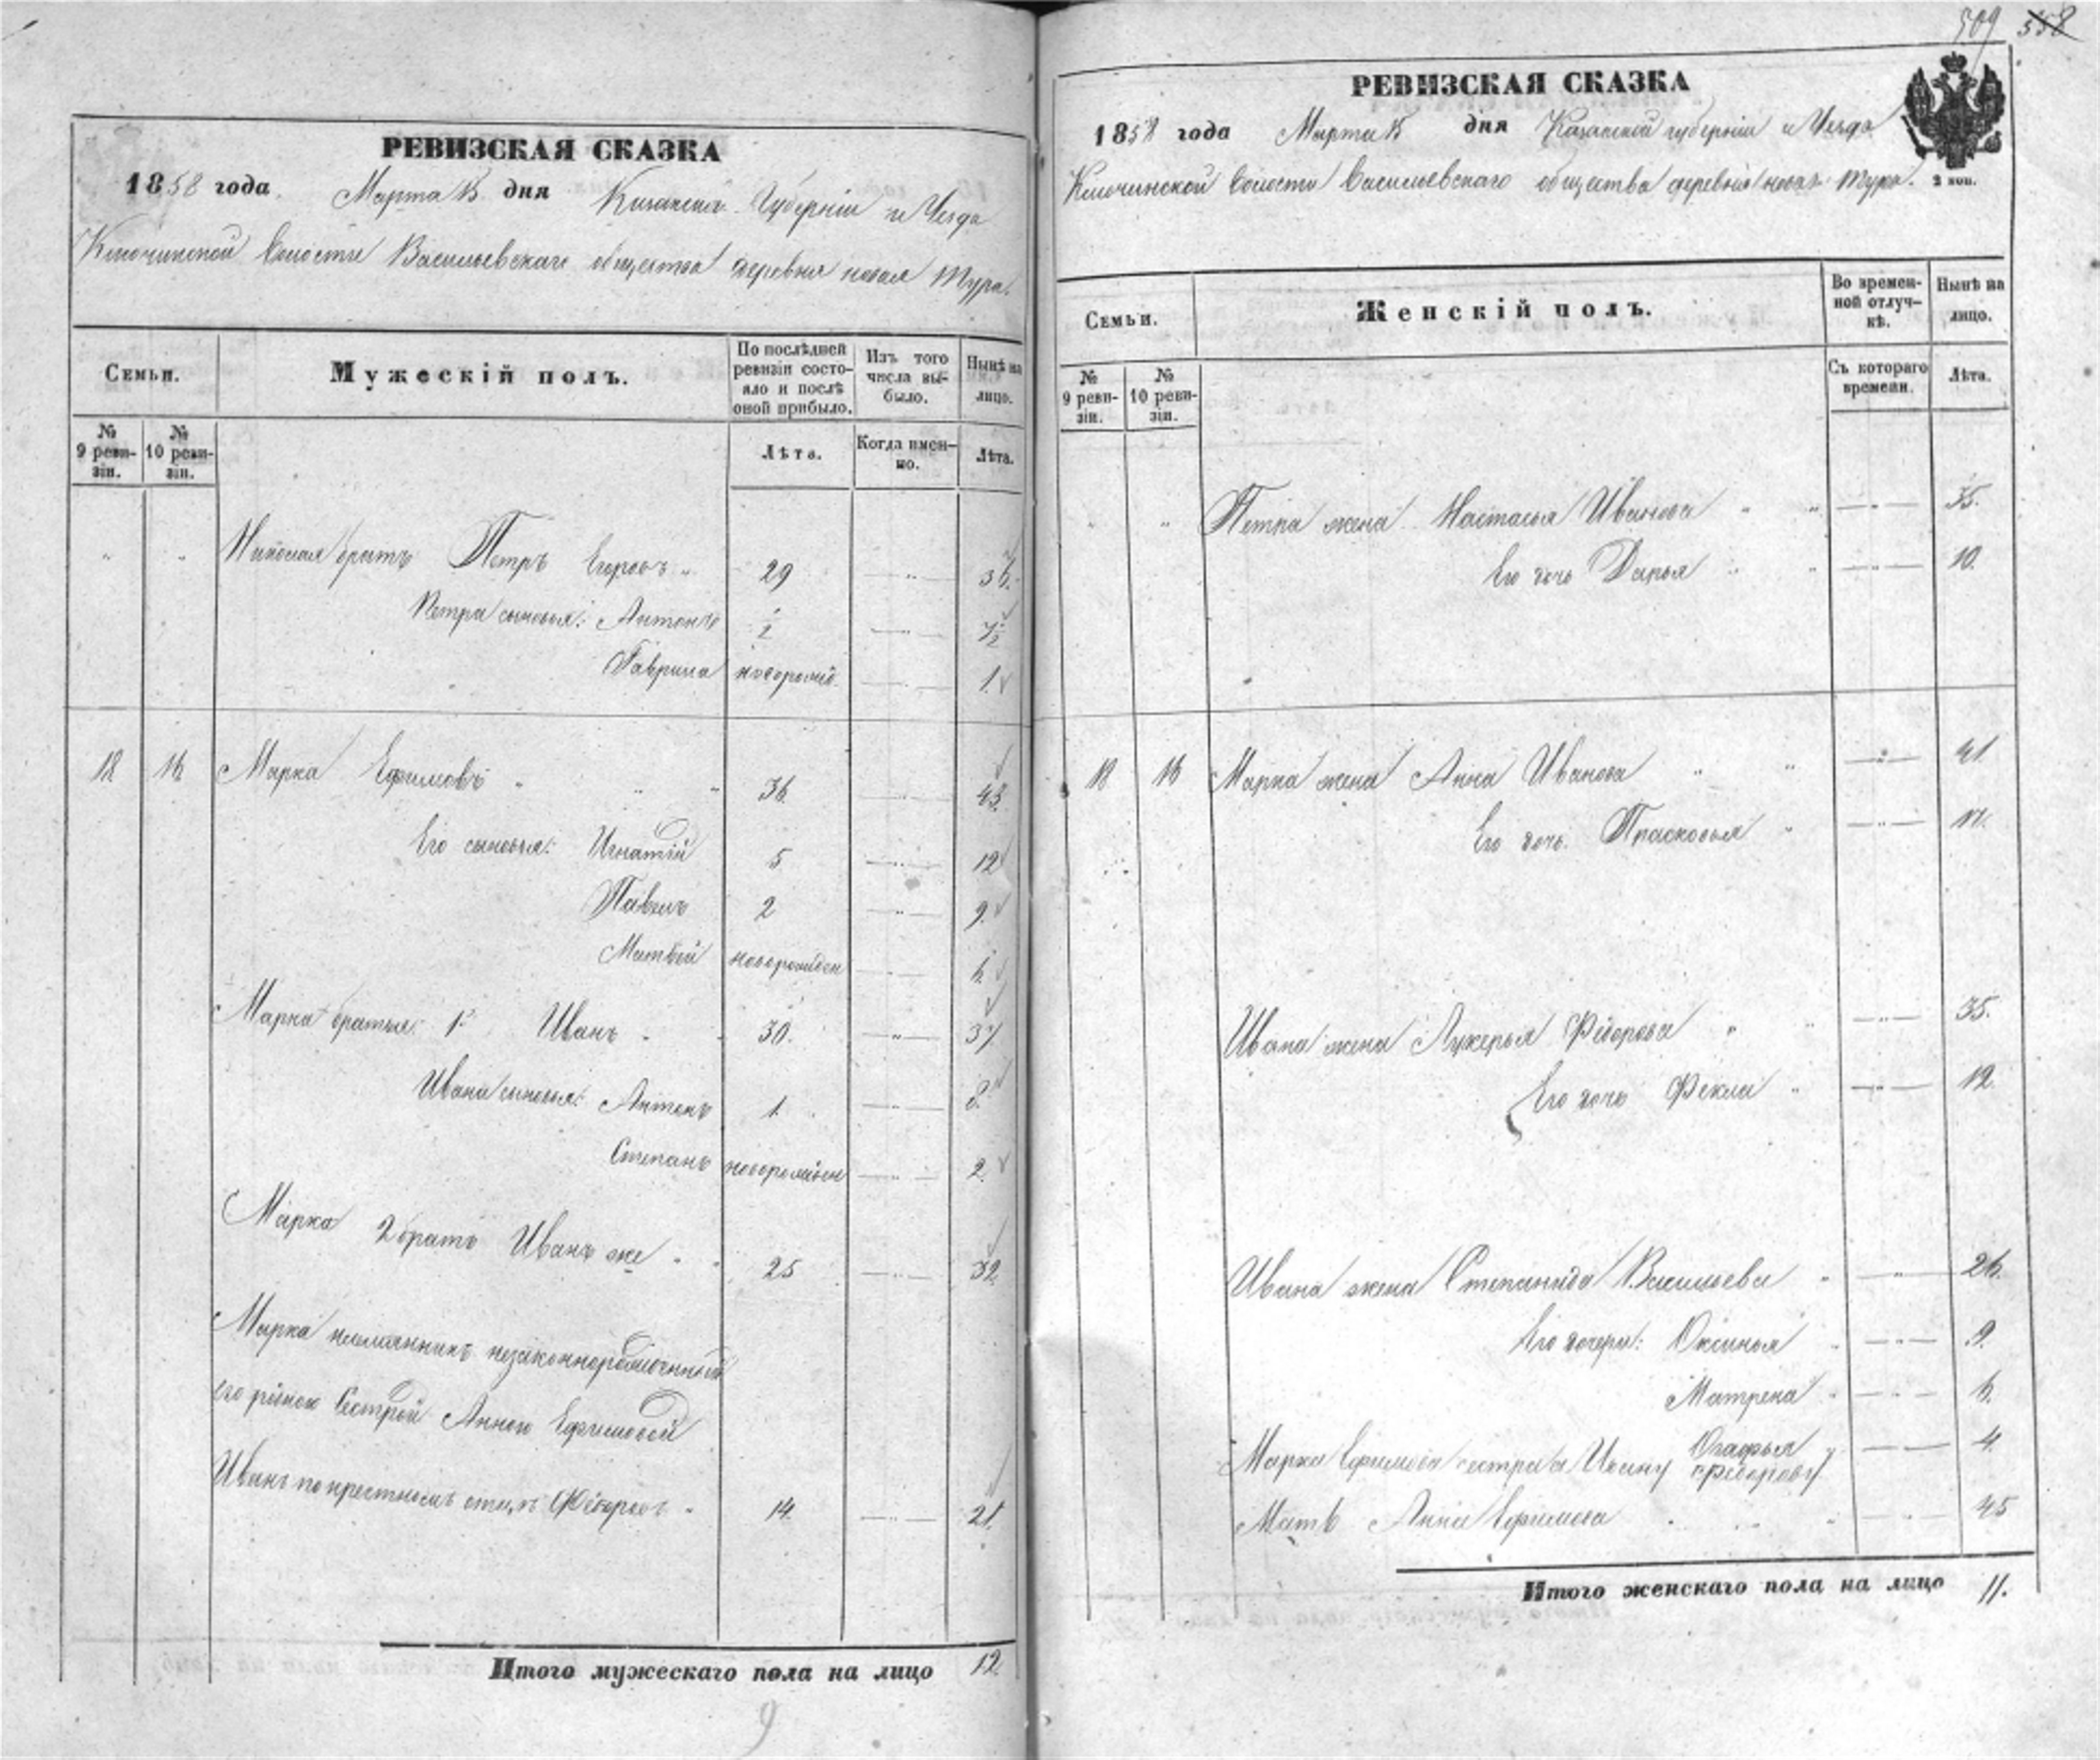 509 558
РЕВИЗСКАЯ СКАЗКА
1858 года. Марта 15 дня Казанской Губернии и Уезда
Ключинской Волости Васильевскаго общества деревня новая Тура.
Семьи.
Мужескій полъ.
По послѣдней ревизіи состояло и послѣ оной прибыло.
Изъ того числа выбыло.
Нынѣ на лицо.
№ 9 ревизіи.
№ 10 ревизіи.
Лѣта.
Когда именно.
Лѣта.
" " Николая братъ Петръ Егоровъ " 29 — " — 36.
Петра сыновья: Антонъ 1/2 — " — 7 1/2
Гаврила новорожд. — " — 1.
18 16 Марка Ефимовъ " " " 36. — " — 43.
Его сыновья: Игнатій 5 — " — 12
Павелъ 2 — " — 9.
Матвей новорожден — " — 6.
Марка братья: 1й Иванъ " " 30. — " — 37
Ивана сыновья: Антонъ 1. — " — 8.
Степанъ новорожден — " — 2.
Марка 2 братъ Иванъ же " " 25 — " — 32.
Марка племянникъ незаконнорожденный
его родной Сестрой Анною Ефимовой
Иванъ по крестномъ отцѣ Фёдоровъ " 14. — " — 21.
Итого мужескаго пола на лицо 12
9
РЕВИЗСКАЯ СКАЗКА
1858 года Марта 15 дня Казанской губерніи и Уезда
Ключинской Волости Васильевскаго общества деревня новая Тура.
2 коп.
Семьи.
Женскій полъ.
Во временной отлучкѣ.
Нынѣ на лицо.
№ 9 ревизіи.
№ 10 ревизіи.
Съ котораго времени.
Лѣта.
" " Петра жена Настасья Иванова " " — " — 35.
Его дочь Дарья " " — " — 10.
18 16 Марка жена Анна Иванова " " — " — 41
Его дочь. Прасковья " — " — 17.
Ивана жена Лукерья Фёдорова " " — " — 35.
Его дочь Фекла " — " — 12.
Ивана жена Степанида Васильева " — " — 26.
Его дочери: Оксинья " — " — 9.
Матрена " — " — 6.
Огафья — " — 4.
Марка Ефимова сестра а Ивану Фёдорову
Мать Анна Ефимова " — " — 45
Итого женскаго пола на лицо 11.